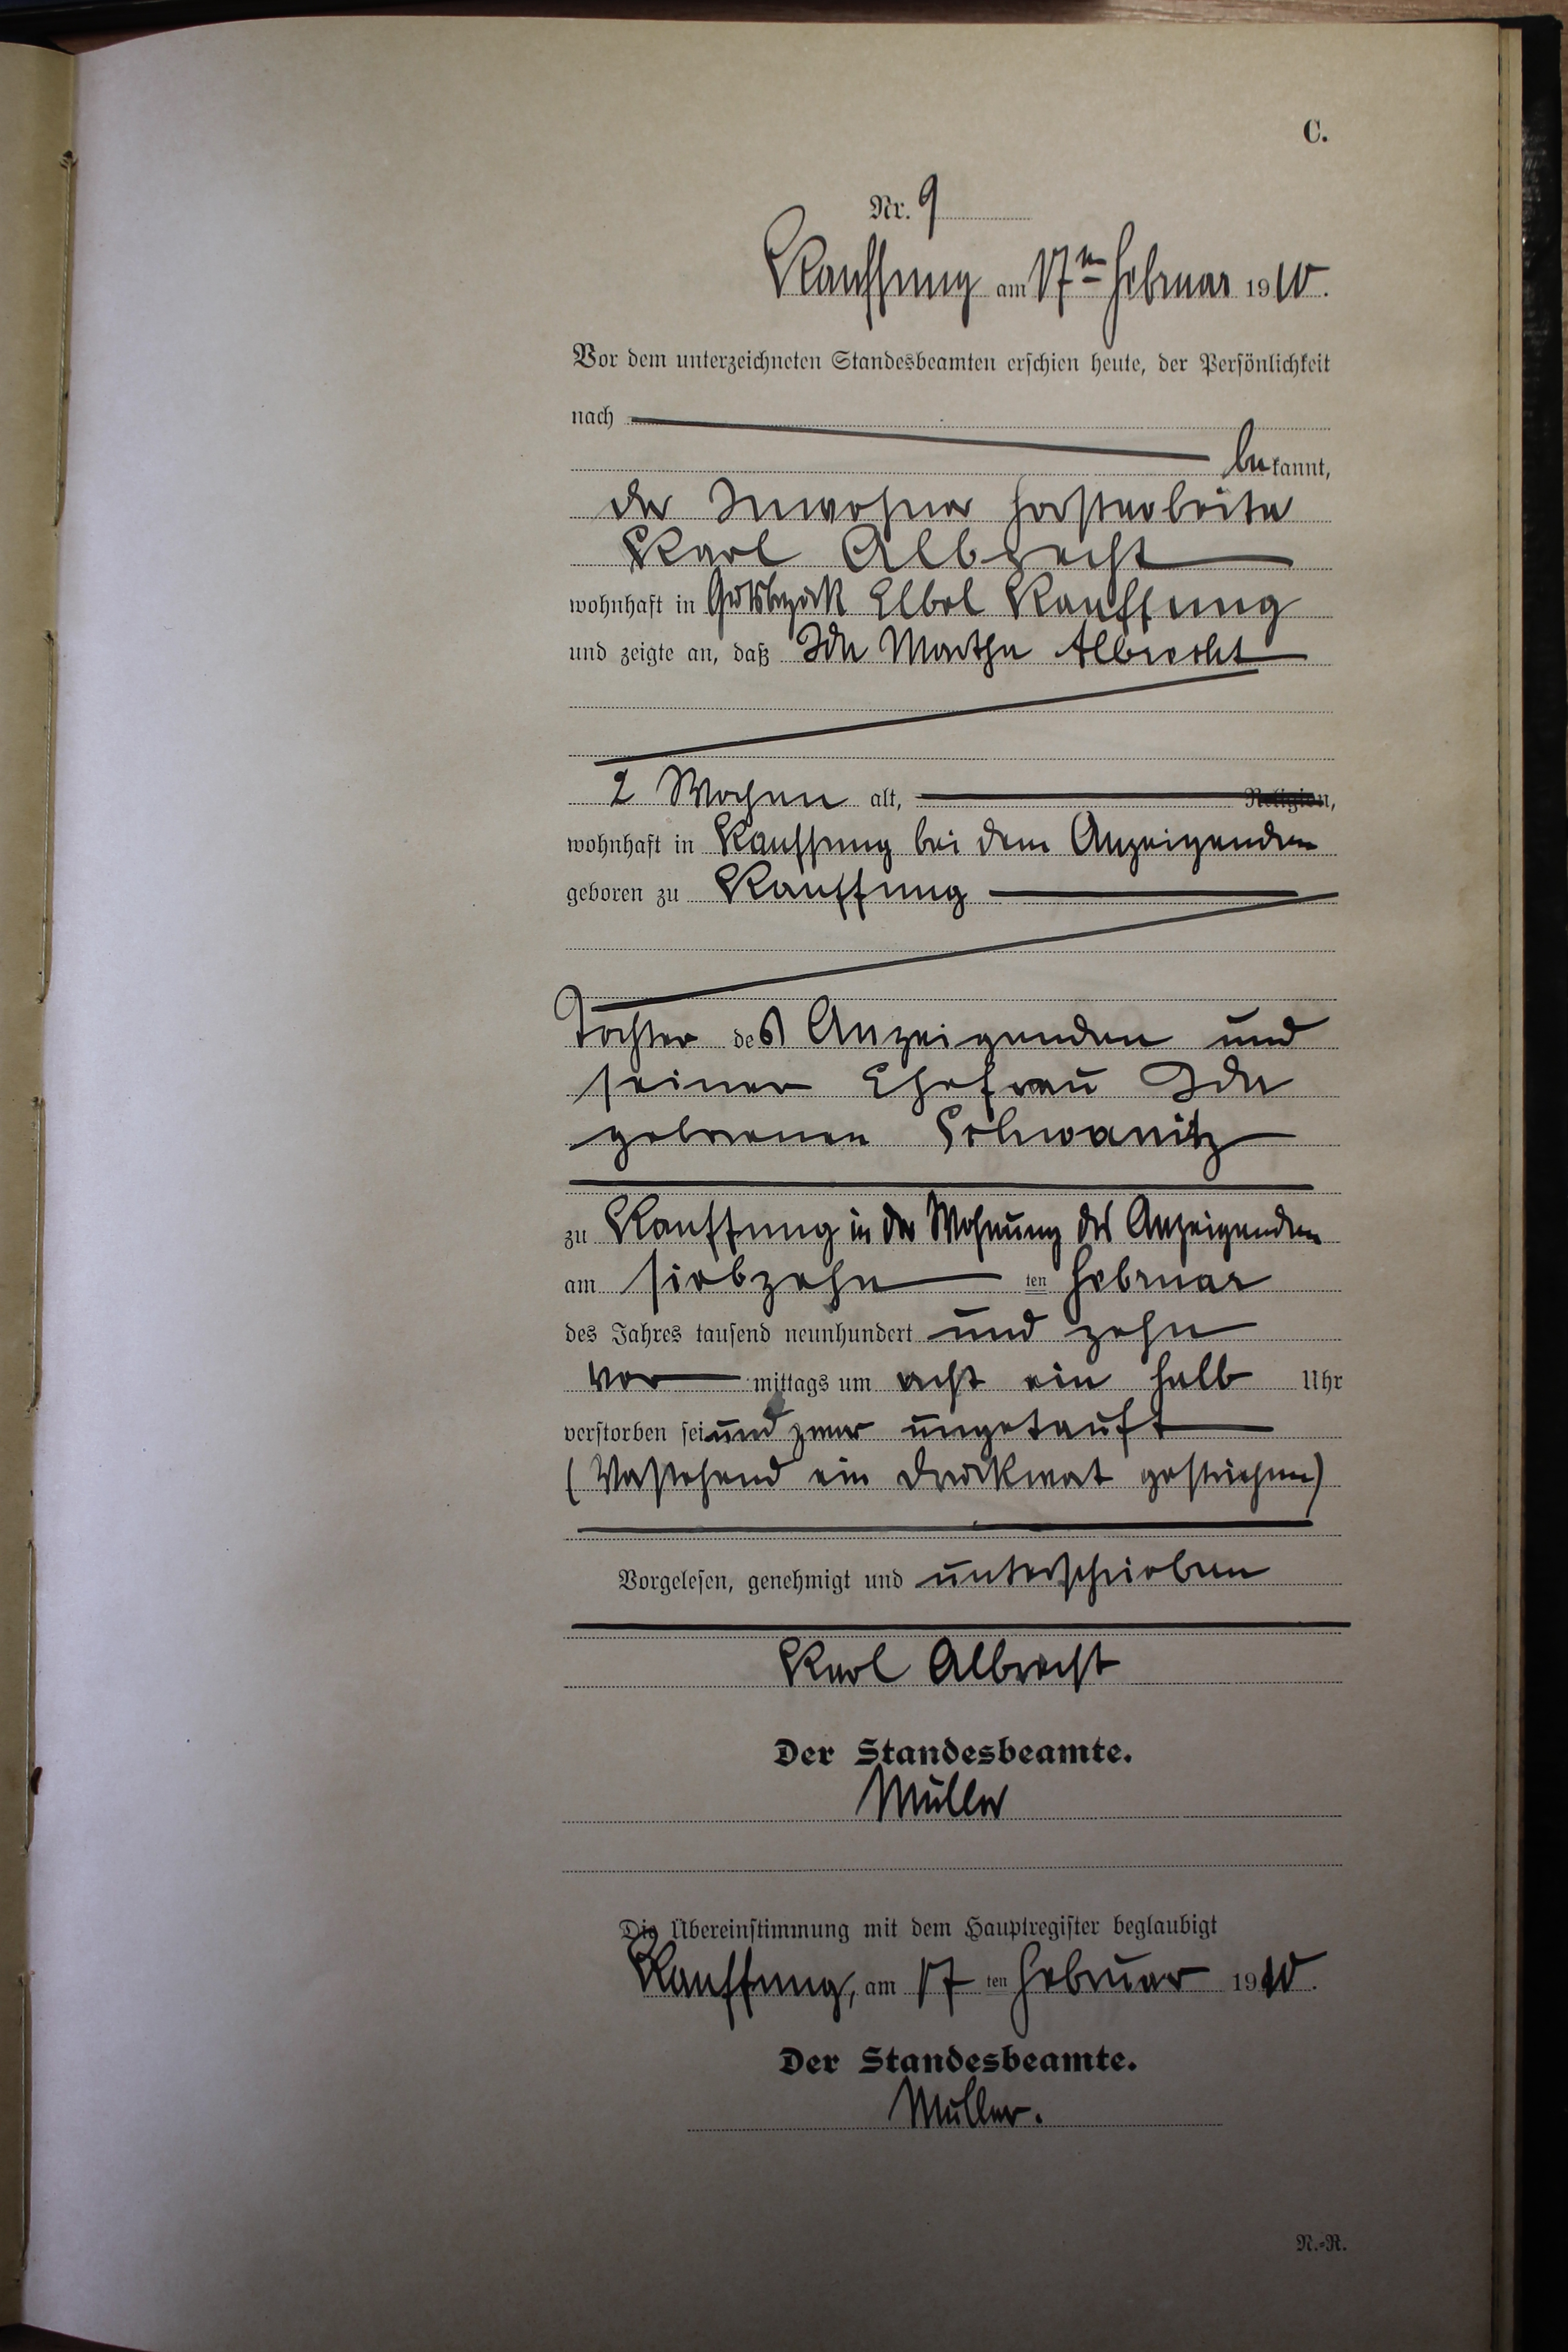 C.
Nr. 9
Kauffung am 17ten Februar 1910.
Vor dem unterzeichneten Standesbeamten erschien heute, der Persönlichkeit
nach
bekannt,
der Inwohner Forstarbeiter
Karl Albrecht
wohnhaft in Gutsbezirk Elbel Kauffung
und zeigte an, daß Ida Martha Albrecht
2 Wochen alt, Religion,
wohnhaft in Kauffung bei dem Anzeigenden
geboren zu Kauffung
Tochter des Anzeigenden und
seiner Ehefrau Ida
geborenen Schwanitz
zu Kauffung in der Wohnung des Anzeigenden
am siebzehn ten Februar
des Jahres tausend neunhundert und zehn
vor mittags um acht ein halb Uhr
verstorben sei und zwar ungetauft
(Vorstehend ein Druckwort gestrichen)
Vorgelesen, genehmigt und unterschrieben
Karl Albrecht
Der Standesbeamte.
Müller
Die Übereinstimmung mit dem Hauptregister beglaubigt
Kauffung, am 17 ten Februar 1910.
Der Standesbeamte.
Müller.
N.-R.